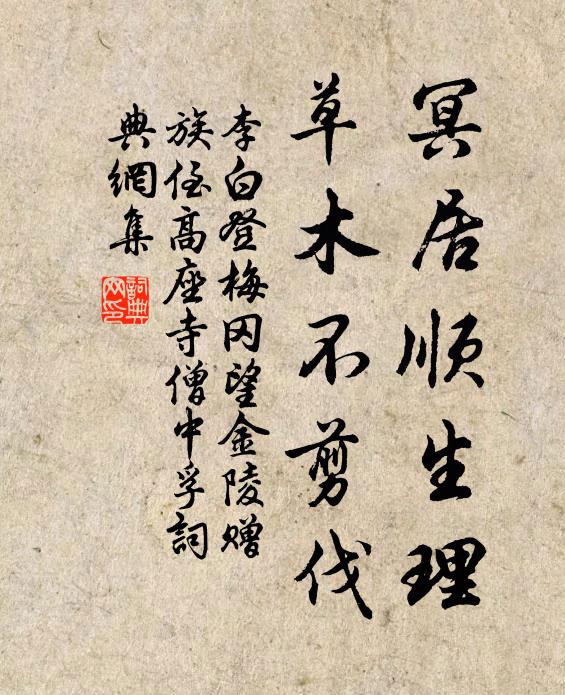 冥居顺生理
草木不剪伐
李白登梅冈望金陵赠
族侄高座寺僧中孚詞
典網集
詞典
网印